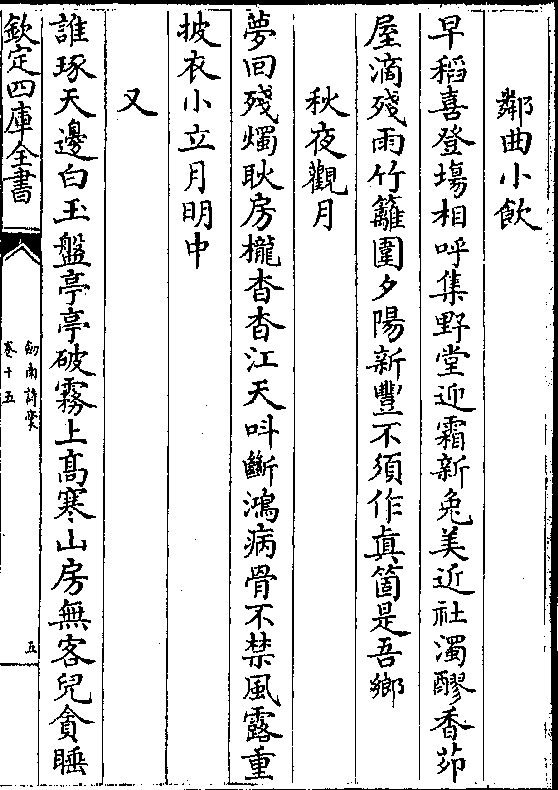 鄰曲小飲
早稻喜登塲相呼集野堂迎霜新兔美近社濁醪香茆
屋滴殘雨竹籬圍夕陽新豐不須作真箇是吾鄉
秋夜觀月
夢回殘燭耿房櫳杳杳江天呌斷鴻病骨不禁風露重
披衣小立月明中
又
誰琢天邊白玉盤亭亭破霧上高寒山房無客兒貪睡
欽定四庫全書
劍南詩稾
卷十五
五